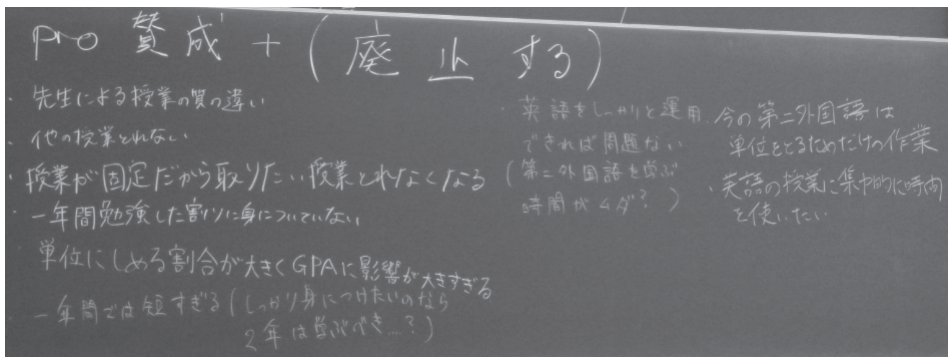 pro 賛成 + (廃止する)
・先生による授業の質の違い
・他の授業とれない
・授業が固定だから取りたい授業とれなくなる
・一年間勉強した割りに身についていない
単位にしめる割合が大きくGPAに影響が大きすぎる
- 一年間では短すぎる(しっかり身につけたいのなら
2年は学ぶべき…?)
・英語をしっかりと運用
できれば問題ない
(第二外国語を学ぶ
時間がムダ?)
・今の第二外国語は
単位をとるためだけの作業
・英語の授業に集中的に時間
を使いたい